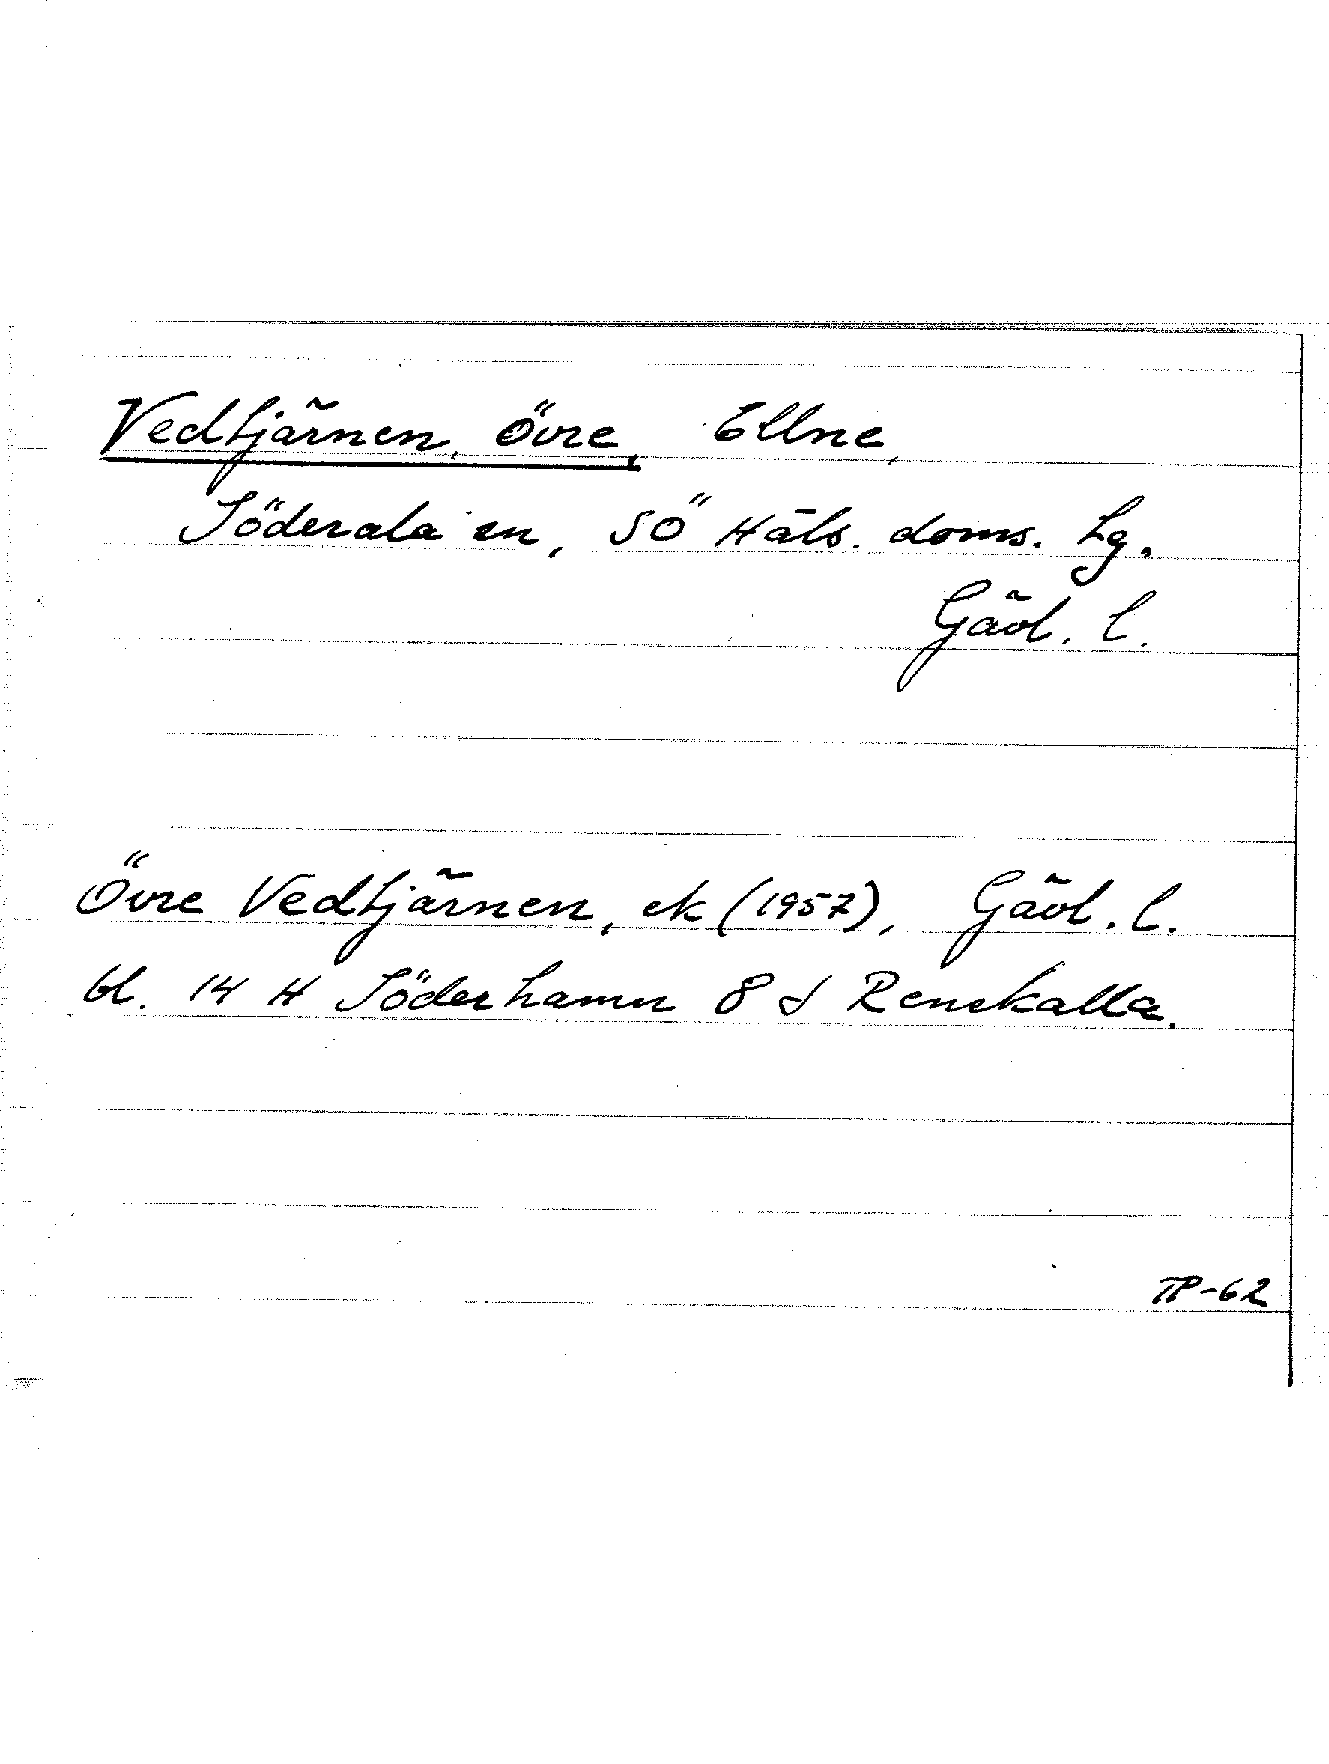 Vedtjärnen, Övre, Ellne,
Söderala sn, SÖ Häls. doms. Lg.
Gävl. l.
Övre Vedtjärnen, ek (1957), Gävl. l.
bl. 14 H Söderhamn 8 d Renskalla.
TP-62